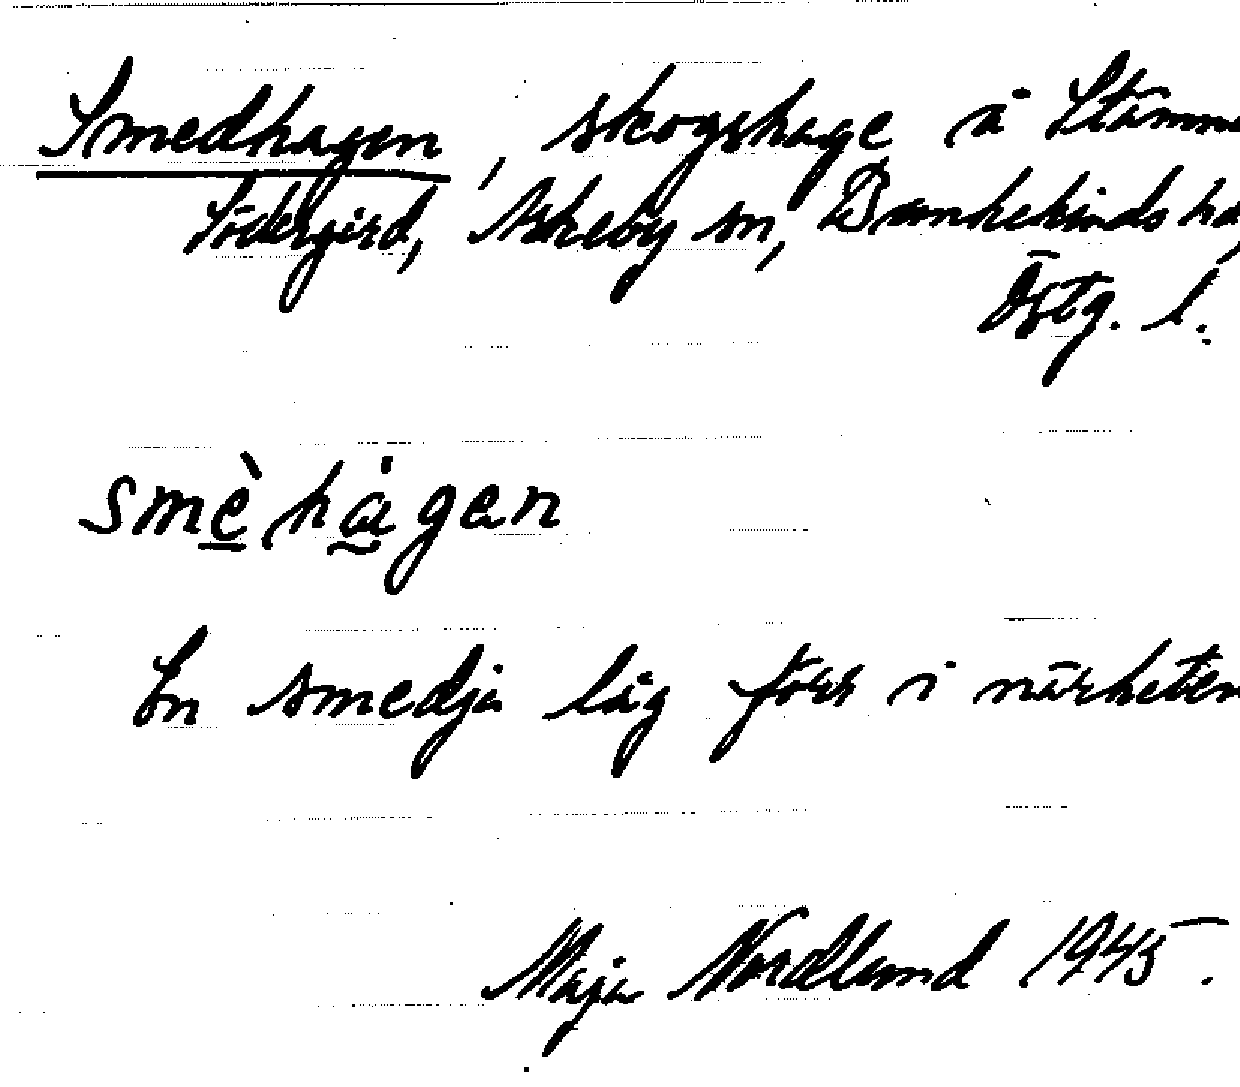 Smedhagen, skogshage å Stämme
Södergård, Askeby sn, Bankekinds hd,
Östg. l.
smèhågen
En smedja låg förr i närheten
Maja Nordlund 1945.